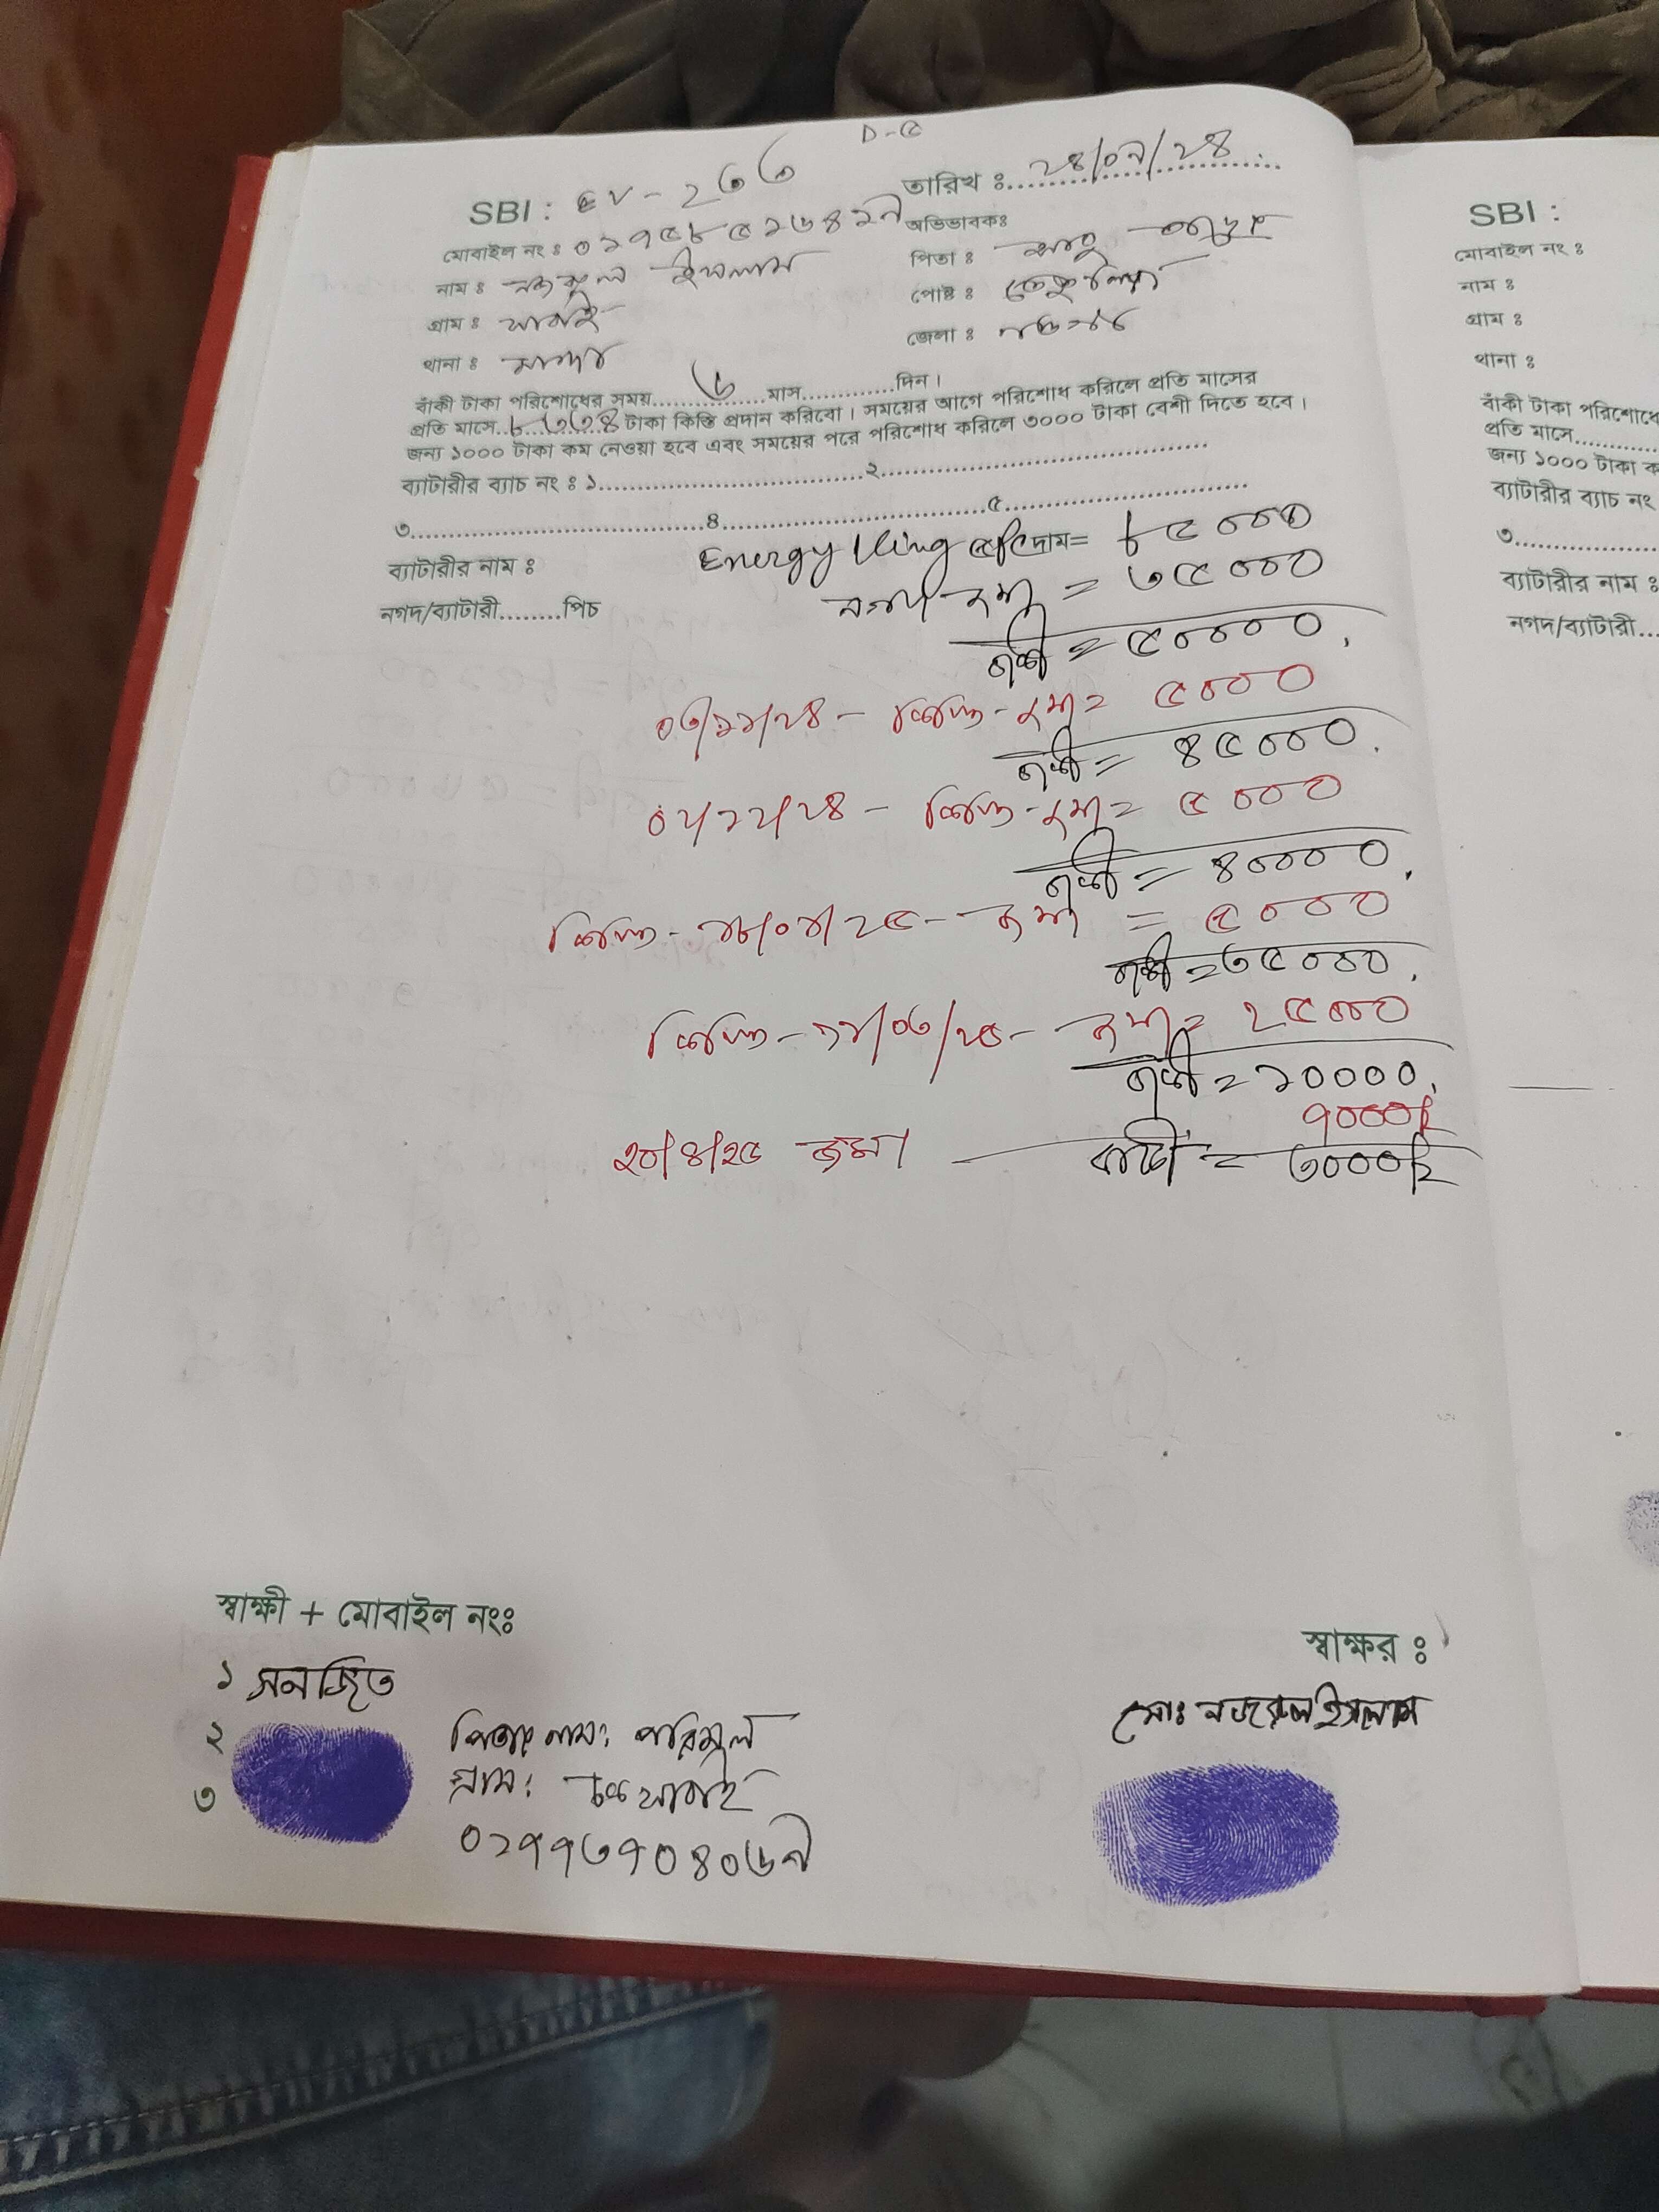 D-৫
SBI : EV - ২৩৩
তারিখ ঃ..... ২৪/০৯/২৪
মোবাইল নং ঃ ০১৭৫৮৫২৬৪২৯
অভিভাবকঃ
নাম ঃ নজরুল ইসলাম
পিতা ঃ
গ্রাম ঃ
পোষ্ট ঃ
থানা ঃ মান্দা
জেলা ঃ নওগাঁ
বাঁকী টাকা পরিশোধের সময়......৬......মাস............দিন।
প্রতি মাসে..৮৩৩৪ টাকা কিস্তি প্রদান করিবো। সময়ের আগে পরিশোধ করিলে প্রতি মাসের
জন্য ১০০০ টাকা কম নেওয়া হবে এবং সময়ের পরে পরিশোধ করিলে ৩০০০ টাকা বেশী দিতে হবে।
ব্যাটারীর ব্যাচ নং ঃ ১..............................২..............................
৩..............................৪..............................৫..............................
ব্যাটারীর নাম ঃ Energy King ৫পিচ দাম= ৮৫০০০
নগদ/ব্যাটারী........পিচ নগদ জমা = ৩৫০০০
বাকী = ৫০০০০
০৩/১১/২৪ - কিস্তি - জমা = ৫০০০
বাকী = ৪৫০০০
০২/১২/২৪ - কিস্তি - জমা = ৫০০০
বাকী = ৪০০০০
কিস্তি - জমা = ৫০০০
বাকী = ৩৫০০০
কিস্তি - জমা = ২৫০০০
বাকী = ১০০০০
৭০০০/=
২০/৪/২৫ জমা
বাকী = ৩০০০/=
স্বাক্ষী + মোবাইল নংঃ
স্বাক্ষর ঃ
১ সনজিত
মোঃ নজরুল ইসলাম
২ পিতার নাম: পরিমল
৩ গ্রাম: চকখাবাই
০১৭৭৩৭০৪০৬৯
SBI :
মোবাইল নং ঃ
নাম ঃ
গ্রাম ঃ
থানা ঃ
বাঁকী টাকা পরিশোধে
প্রতি মাসে............
জন্য ১০০০ টাকা ক
ব্যাটারীর ব্যাচ নং
৩..............
ব্যাটারীর নাম ঃ
নগদ/ব্যাটারী...